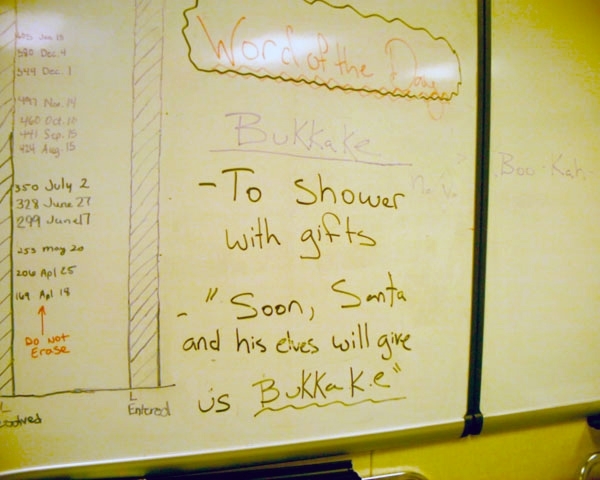 Word of the Day
Bukkake
- To shower
with gifts
- "Soon, Santa
and his elves will give
us Bukkake"
Boo-Kah-
380 Dec. 4
544 Dec. 1
497 Nov. 14
460 Oct. 10
441 Sep. 15
424 Aug. 15
350 July 2
328 June 27
299 June 17
253 May 20
206 Apl 25
169 Apl 18
Do Not
Erase
Entered